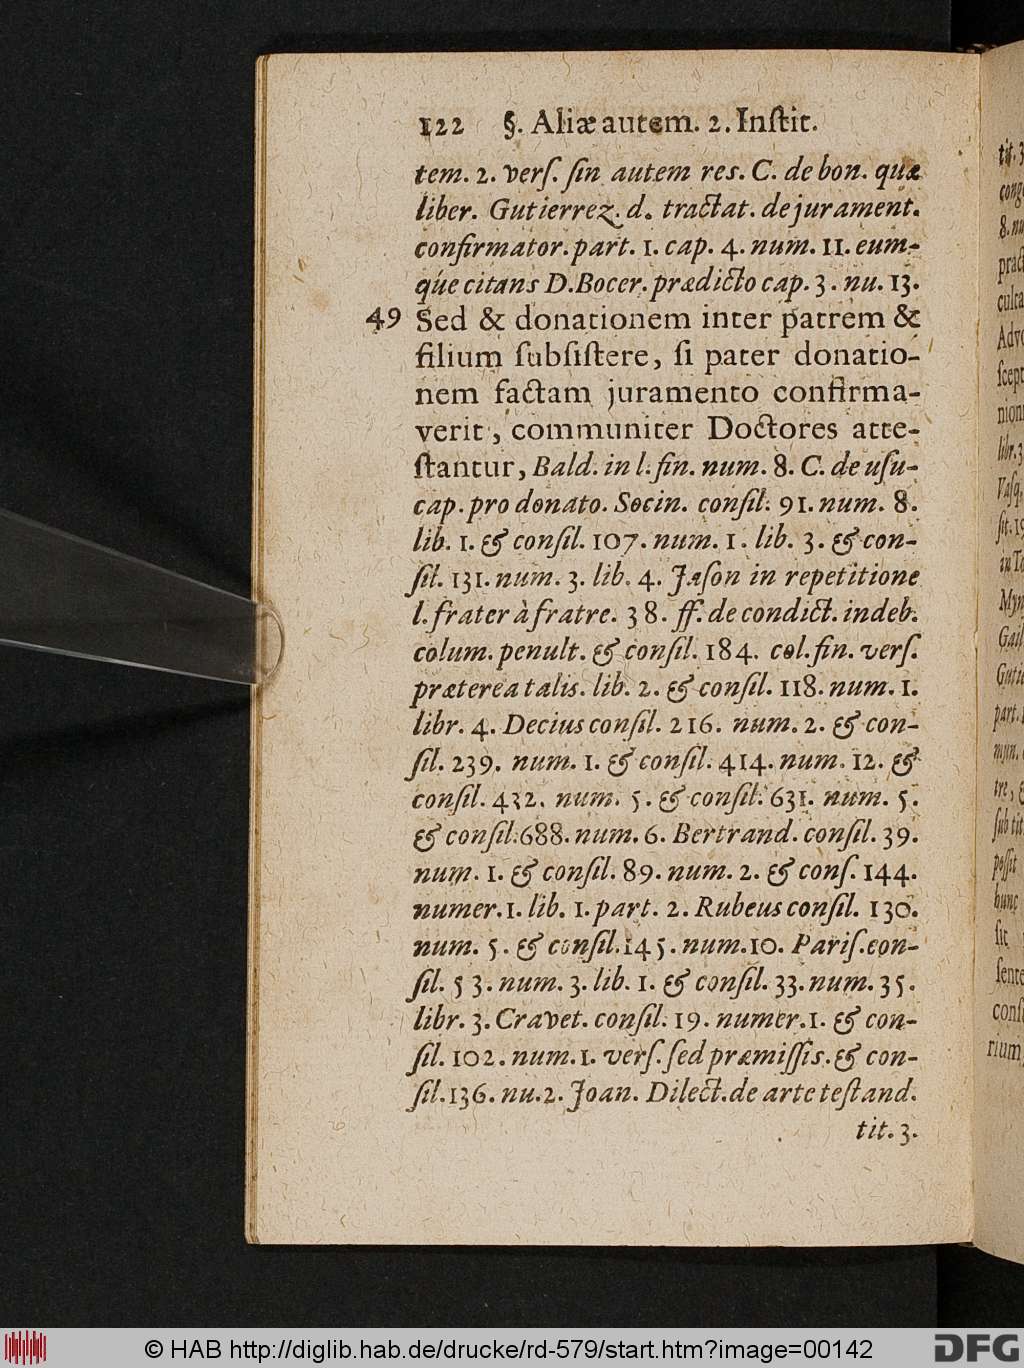 122 §. Aliæ autem. 2. Instit.
tem. 2. vers. sin autem res. C. de bon. quæ
liber. Gutierrez. d. tractat. de jurament.
confirmator. part. 1. cap. 4. num. 11. eum-
que citans D. Bocer. prædicto cap. 3. nu. 13.
49 Sed & donationem inter patrem &
filium subsistere, si pater donatio-
nem factam juramento confirma-
verit, communiter Doctores atte-
stantur, Bald. in l. fin. num. 8. C. de usu-
cap. pro donato. Socin. consil. 91. num. 8.
lib. 1. & consil. 107. num. 1. lib. 3. & con-
sil. 131. num. 3. lib. 4. Jason in repetitione
l. frater à fratre. 38. ff. de condict. indeb.
colum. penult. & consil. 184. col. fin. vers.
præterea talis. lib. 2. & consil. 118. num. 1.
libr. 4. Decius consil. 216. num. 2. & con-
sil. 239. num. 1. & consil. 414. num. 12. &
consil. 432. num. 5. & consil. 631. num. 5.
& consil. 688. num. 6. Bertrand. consil. 39.
num. 1. & consil. 89. num. 2. & cons. 144.
numer. 1. lib. 1. part. 2. Rubeus consil. 130.
num. 5. & consil. 145. num. 10. Paris. con-
sil. 53. num. 3. lib. 1. & consil. 33. num. 35.
libr. 3. Cravet. consil. 19. numer. 1. & con-
sil. 102. num. 1. vers. sed præmissis. & con-
sil. 136. nu. 2. Joan. Dilect. de arte testand.
tit. 3.
© HAB http://diglib.hab.de/drucke/rd-579/start.htm?image=00142
DFG